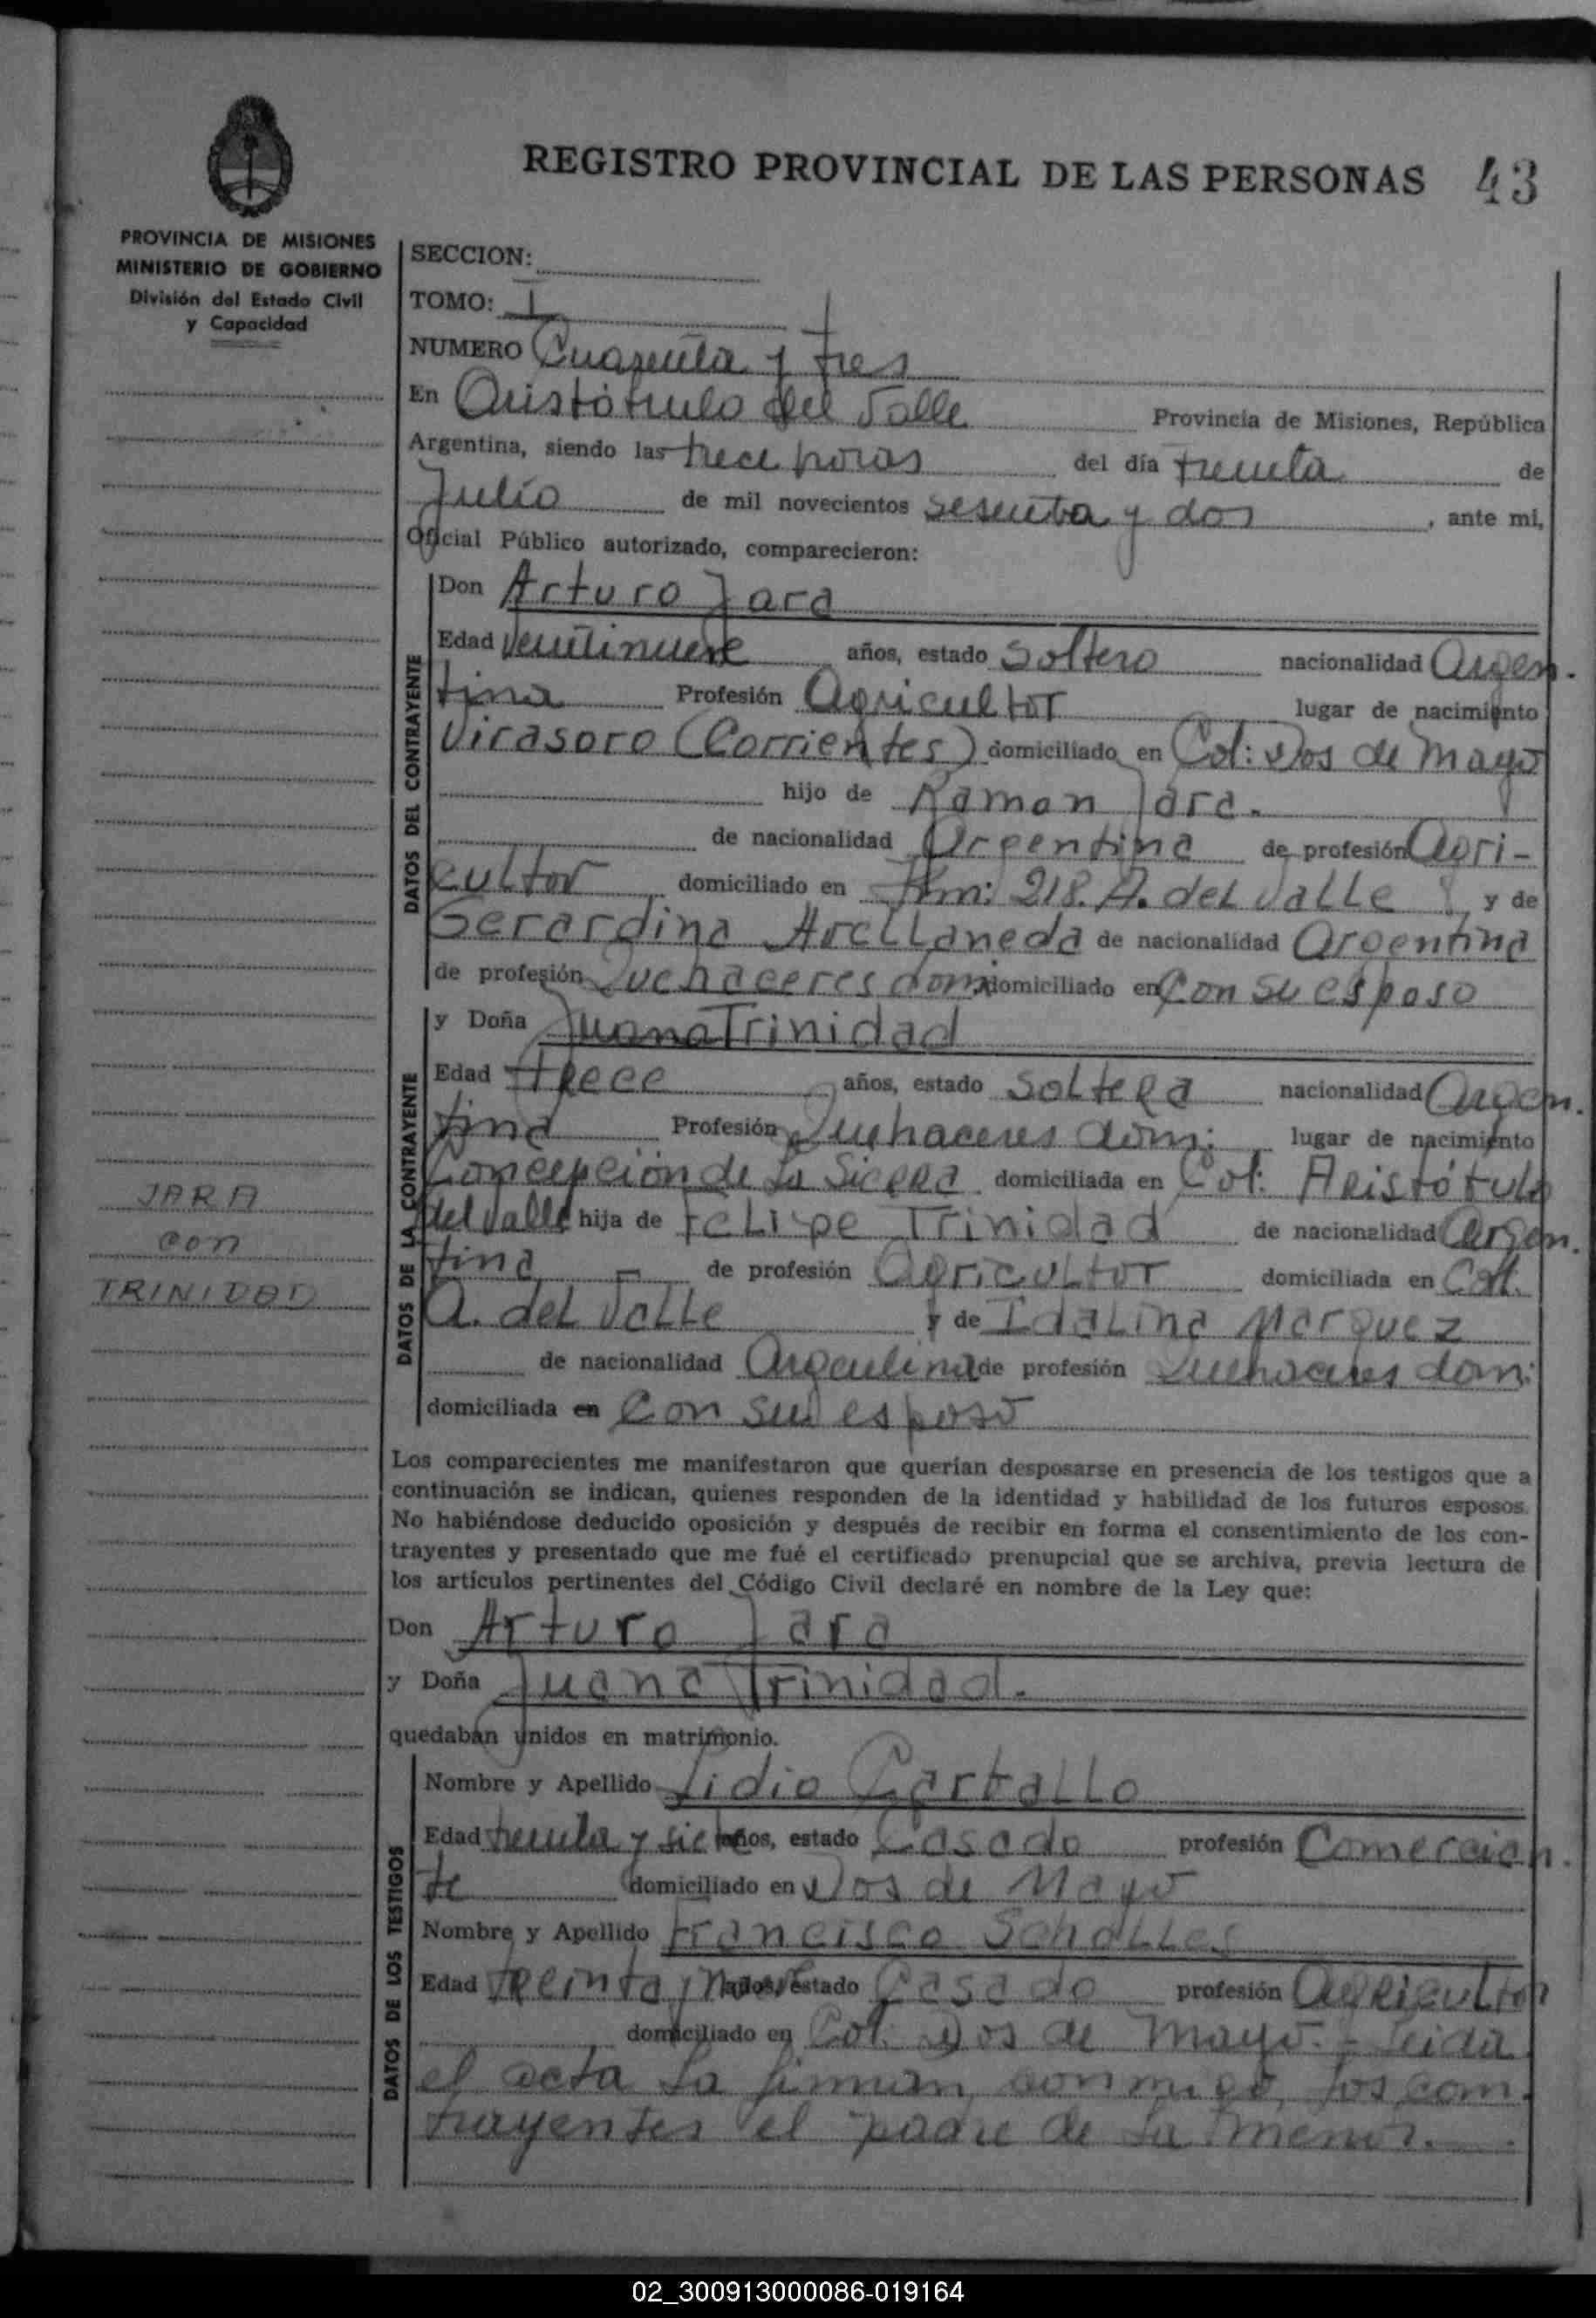 REGISTRO PROVINCIAL DE LAS PERSONAS 43
PROVINCIA DE MISIONES
MINISTERIO DE GOBIERNO
División del Estado Civil
y Capacidad
SECCION:
TOMO: I
NUMERO Cuarenta y tres
En Aristóbulo del Valle Provincia de Misiones, República
Argentina, siendo las trece horas del día treinta de
Julio de mil novecientos sesenta y dos, ante mi,
Oficial Público autorizado, comparecieron:
DATOS DEL CONTRAYENTE
Don Arturo Jara
Edad veintinueve años, estado Soltero nacionalidad Argen-
tina Profesión Agricultor lugar de nacimiento
Virasoro (Corrientes) domiciliado en Col: Dos de Mayo
hijo de Ramon Jara.
de nacionalidad Argentina de profesión Agri-
cultor domiciliado en Km: 218. A. del Valle y de
Gerardina Avellaneda de nacionalidad Argentina
de profesión Quehaceres dom: domiciliado en Con su esposo
DATOS DE LA CONTRAYENTE
y Doña Juana Trinidad
Edad trece años, estado Soltera nacionalidad Argen-
tina Profesión Quehaceres dom: lugar de nacimiento
Concepción de La Sierra domiciliada en Col: Aristóbulo
del Valle hija de Felipe Trinidad de nacionalidad Argen-
tina de profesión Agricultor domiciliada en Col.
A. del Valle y de Idalina Marquez
de nacionalidad Argentina de profesión Quehaceres dom:
domiciliada en Con su esposo
JARA
con
TRINIDAD
Los comparecientes me manifestaron que querían desposarse en presencia de los testigos que a
continuación se indican, quienes responden de la identidad y habilidad de los futuros esposos.
No habiéndose deducido oposición y después de recibir en forma el consentimiento de los con-
trayentes y presentado que me fué el certificado prenupcial que se archiva, previa lectura de
los artículos pertinentes del Código Civil declaré en nombre de la Ley que:
Don Arturo Jara
y Doña Juana Trinidad.
quedaban unidos en matrimonio.
DATOS DE LOS TESTIGOS
Nombre y Apellido Lidio Carballo
Edad treinta y siete años, estado Casado profesión Comercian-
te domiciliado en Dos de Mayo
Nombre y Apellido Francisco Schalles
Edad treinta y nueve años, estado Casado profesión Agricultor
domiciliado en Col: Dos de Mayo.- Leida
el acta la firman conmigo, los con-
trayentes el padre de la menor.-
02_300913000086-019164